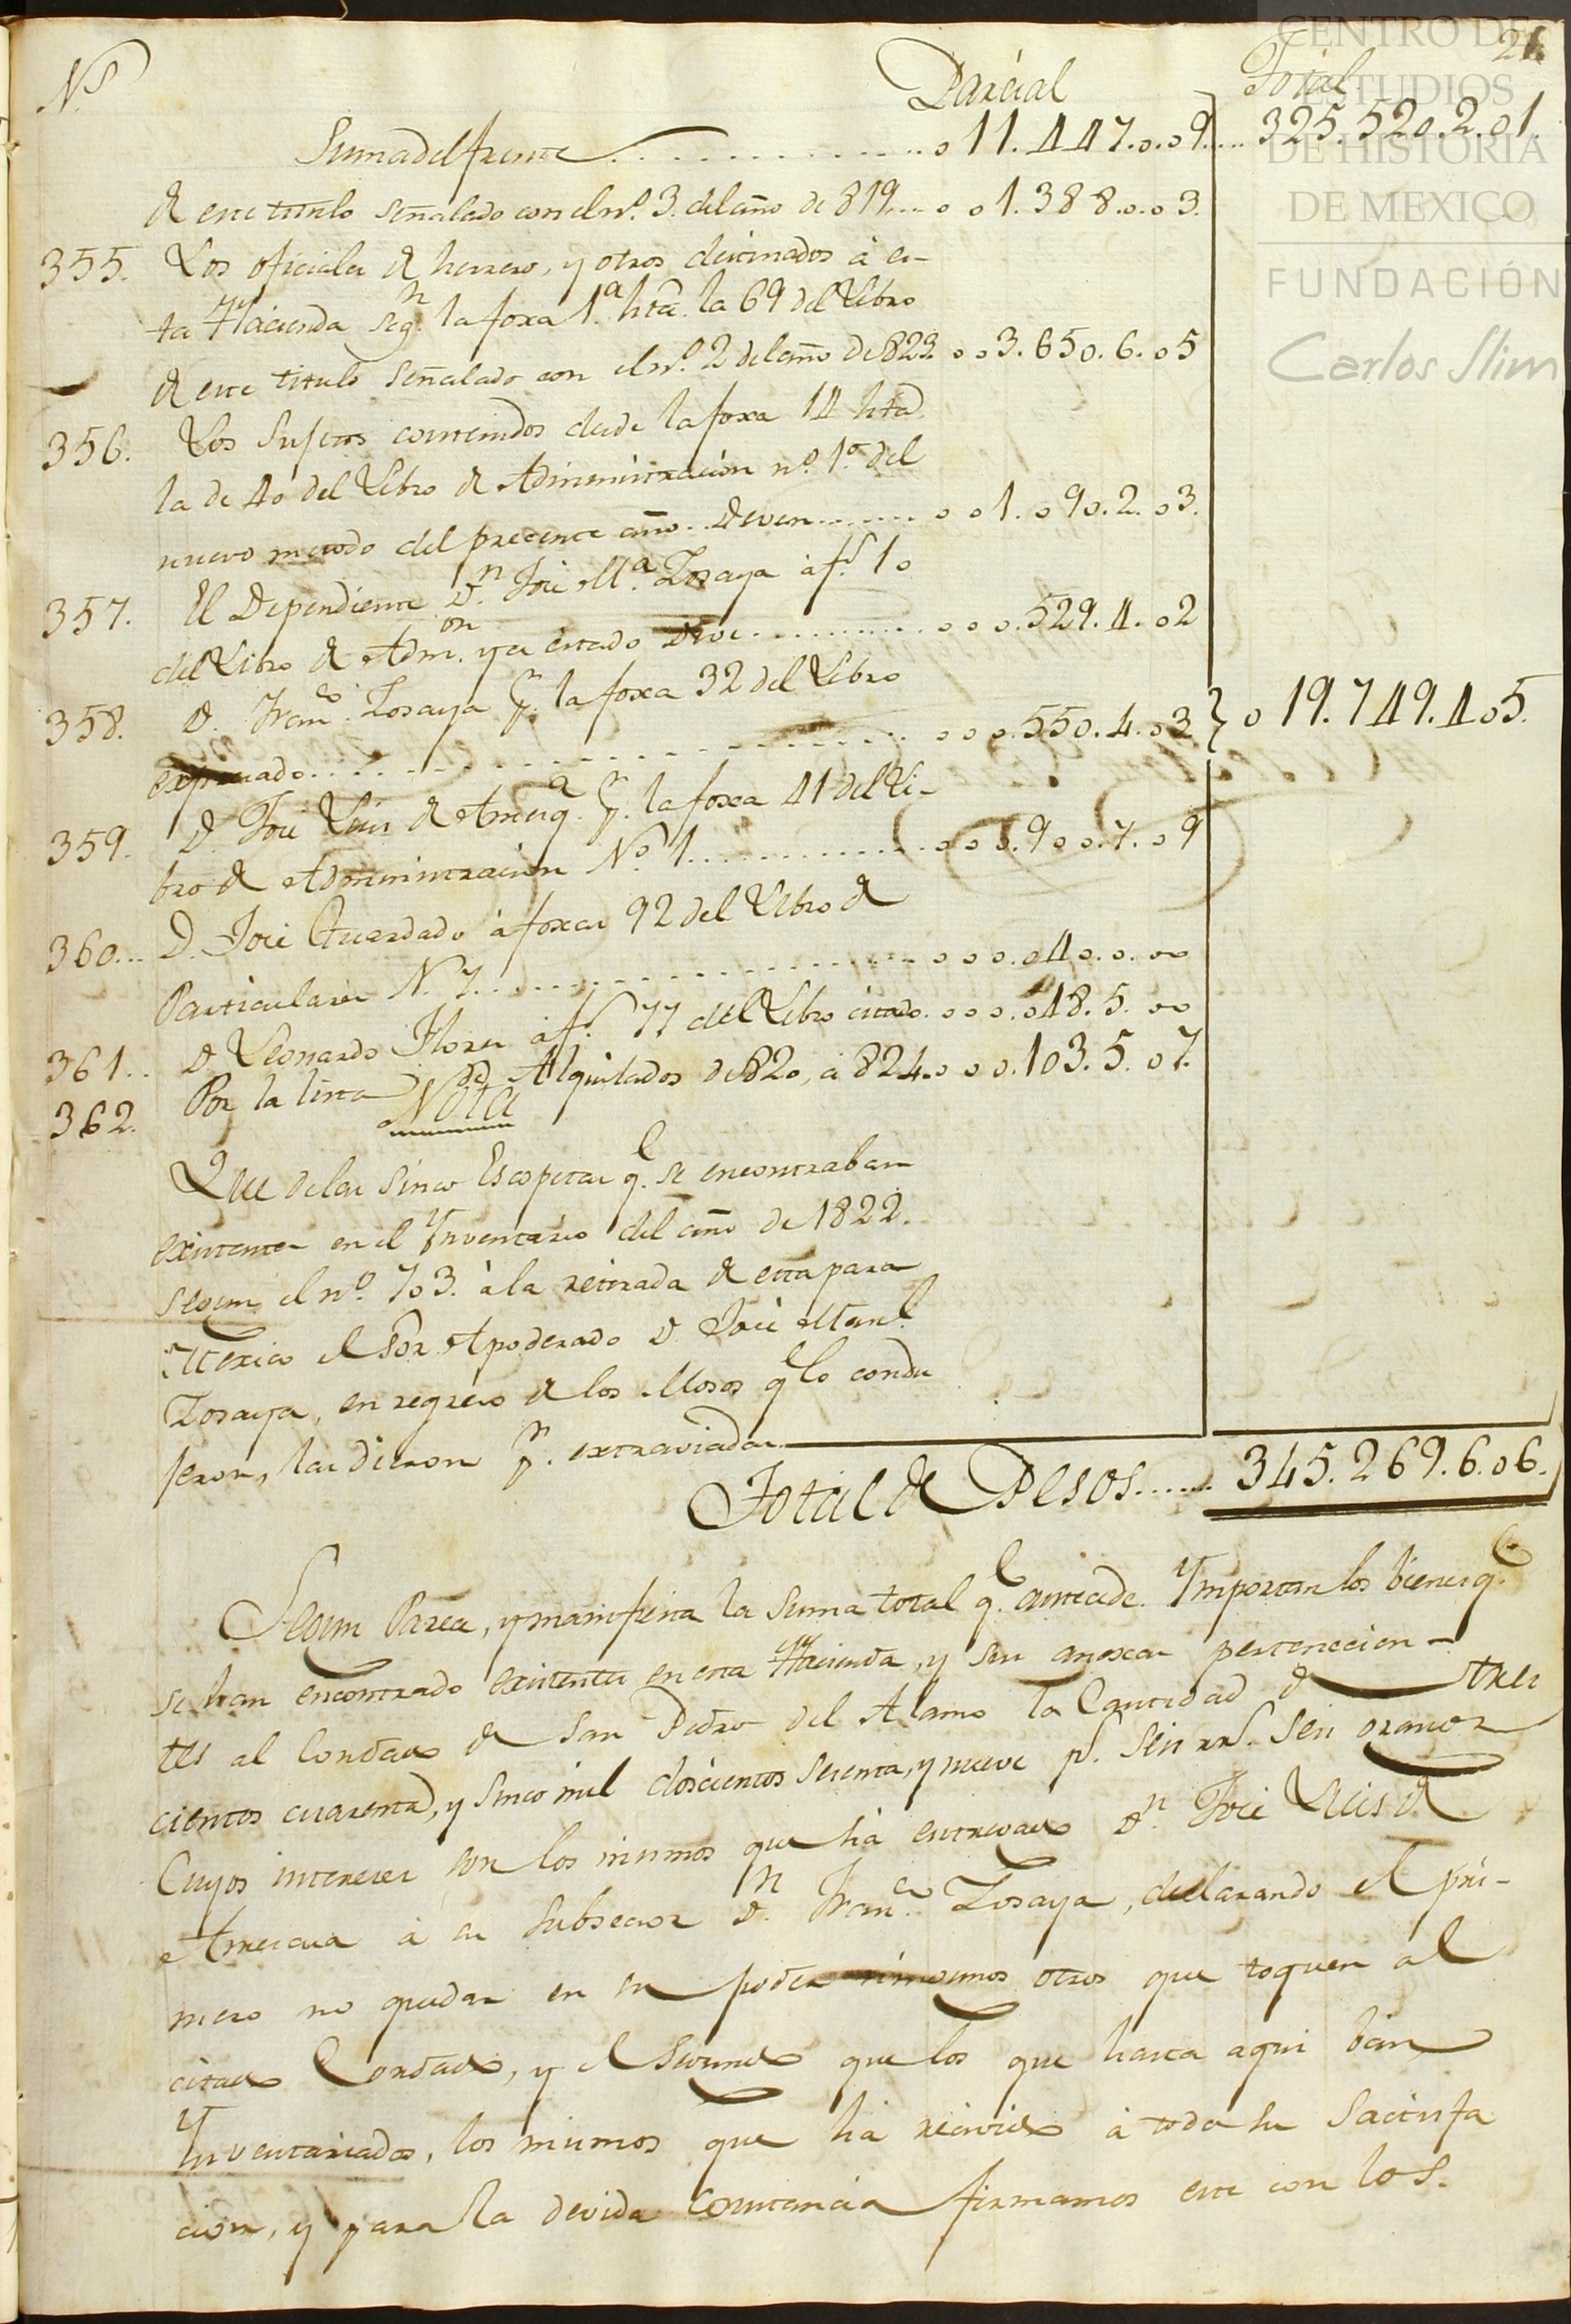 CENTRO DE
ESTUDIOS
DE HISTORIA
DE MEXICO
FUNDACIÓN
Carlos Slim
21.
N.º Parcial Total
Suma del frente . . . . . . . . . . . . o 11.447.o.o9. . . . 325.520.2.o1.
de este titulo señalado con el n.º 3. del año de 819... o o 1.388.o.o3.
355. Los oficiales de herrero, y otros destinados à es-
ta Hacienda seg.n la foxa 1.a hta. la 69 del Libro
de este titulo señalado con el n.º 2 del año de 823. o o 3.650.6.o5
356. Los Sujetos contenidos desde la foxa 14 hta
la de 40 del Libro de Administracion n.º 1.º del
nuevo metodo del presente año.. Deven........ o o 1.o90.2.o3.
357. El Dependiente D.n José M.a Zozaya à f.s 10
del Libro de Adm.on ya citado Deve............ o o o.529.4.o2
358. D. Fran.co Zozaya p.r la foxa 32 del Libro
expresado. . . . . . . . . . . . . . . . . . o o o.550.4.o3 } o 19.749.4o5.
359. D. José Luis de Amesq.a p.r la foxa 41 del Li-
bro de Administracion N.º 1.............. o o o.9oo.7.o9
360... D. José Guardado à foxas 92 del Libro de
Particulares N. 7. . . . . . . . . . . . . . . . . o o o.o40.o.oo
361.. D. Leonardo Flores à f.s 77 del Libro citado. o o o.o48.5.oo
362. Por la lista de Alquilados de 820, à 824. o o o.103.5.o7.
Nota
Que de las sinco Escopetas q.e se encontraban
existentes en el Ynventario del año de 1822.
segun el n.º 703. à la retirada de esta para
Mexico el Sor. Apoderado D. José Man.l
Zozaya, en regreso de los Mosos q.e lo condu
jeron, las dieron p.r extraviadas.
Total de Pesos....... 345.269.6.o6.
Segun Parece, y manifiesta la suma total q.e antecede. Ymportan los bienes q.e
se han encontrado existentes en esta Hacienda, y sus anexas pertenecien-
tes al Condado de San Pedro del Alamo la Cantidad de tres
cientos cuarenta, y sinco mil doscientos sesenta, y nueve p.s seis rr.s seis granos
Cuyos intereses son los mismos que há entregado D.n José Luis de
Amescua à su subsecsor D.n Fran.co Zozaya, declarando el pri-
mero no quedar en su poder ningunos otros que toquen al
citado Condado, y el segundo que los que hasta aqui ban
Ynventariados, los mismos que há recivido à toda su satisfa
cion, y para la devida constancia firmamos este con los S.